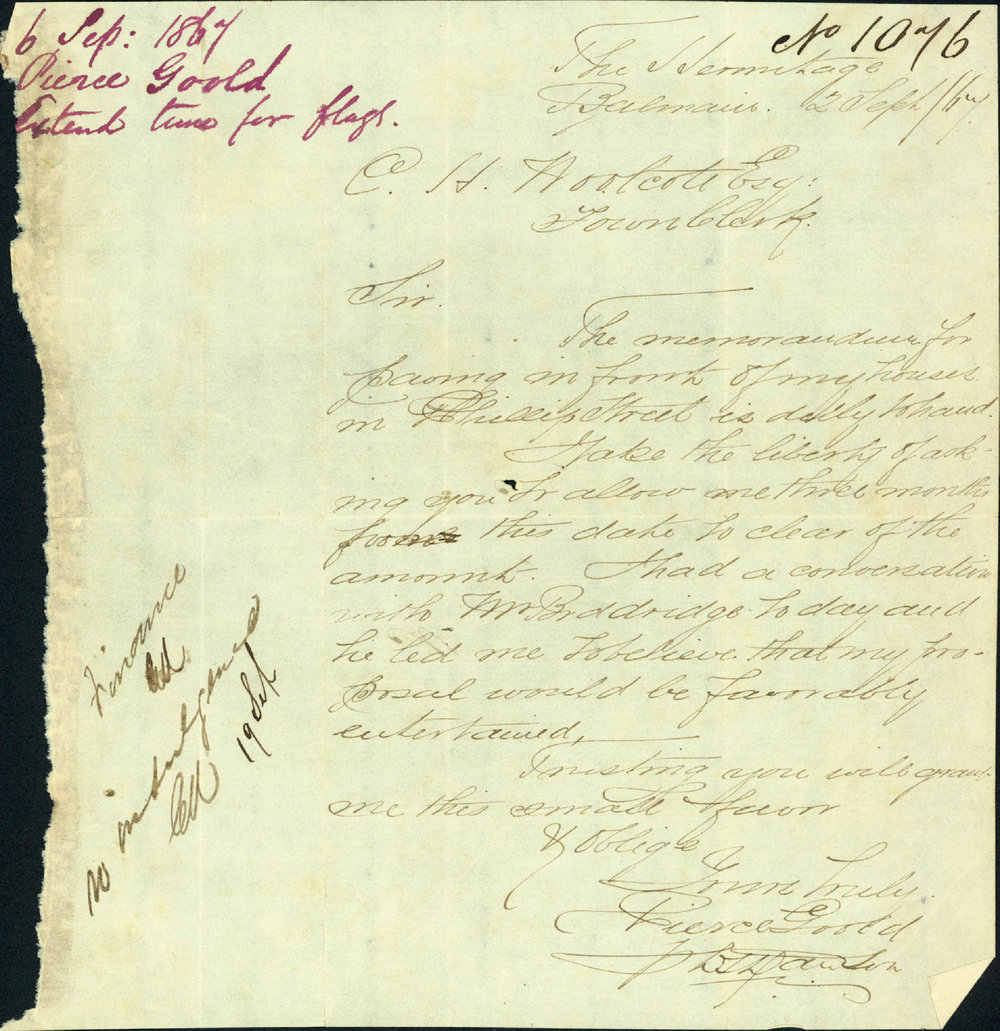 6 Sep: 1867
Pierce Goold
Extend time for flags.
No 1076
The Hermitage
Balmain. 2 Sept/67.
C. H. Woolcott Esq:
Town Clerk.
Sir.
The memorandum for
paving in front of my houses
in Phillip Street is dully to hand.
I take the liberty of ask-
ing you to allow me three months
from this date to clear of the
amount. I had a conversation
with Mr Briddridge to day and
he led me to believe that my pro-
posal would be favorably
entertained,
Trusting you will grant
me this small favor
& oblige
Yours truly.
Pierce Goold
Finance
no indulgence
19 Sep